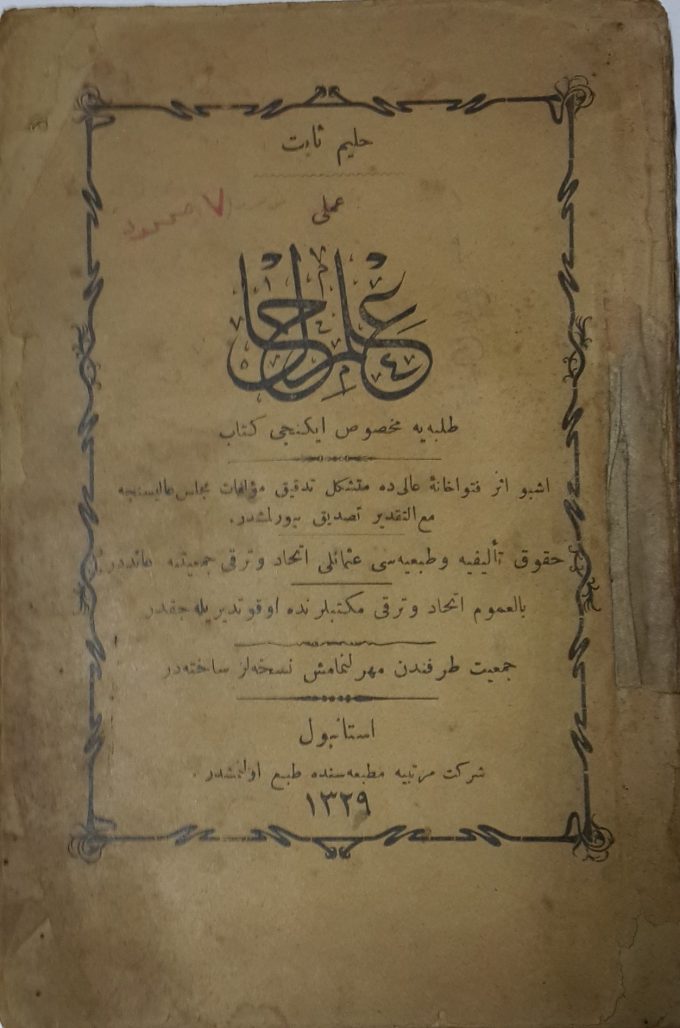 حليم ثابت
عملی
علم حال
طلبه‌يه مخصوص ايكنجی كتاب
اشبو اثر فتواخانهٔ عالی‌ده متشكل تدقيق مؤلفات مجلس عاليسنجه
مع التقدير تصديق بيورلمشدر.
حقوق تأليفيه وطبعيه‌سی عثمانلی اتحاد وترقی جمعيتنه عائددر
بالعموم اتحاد وترقی مكتبلرنده اوقوتديريله‌جقدر
جمعيت طرفندن مهرلنمامش نسخه‌لر ساخته‌در
استانبول
شركت مرتبيه مطبعه‌سنده طبع اولنمشدر.
١٣٢٩